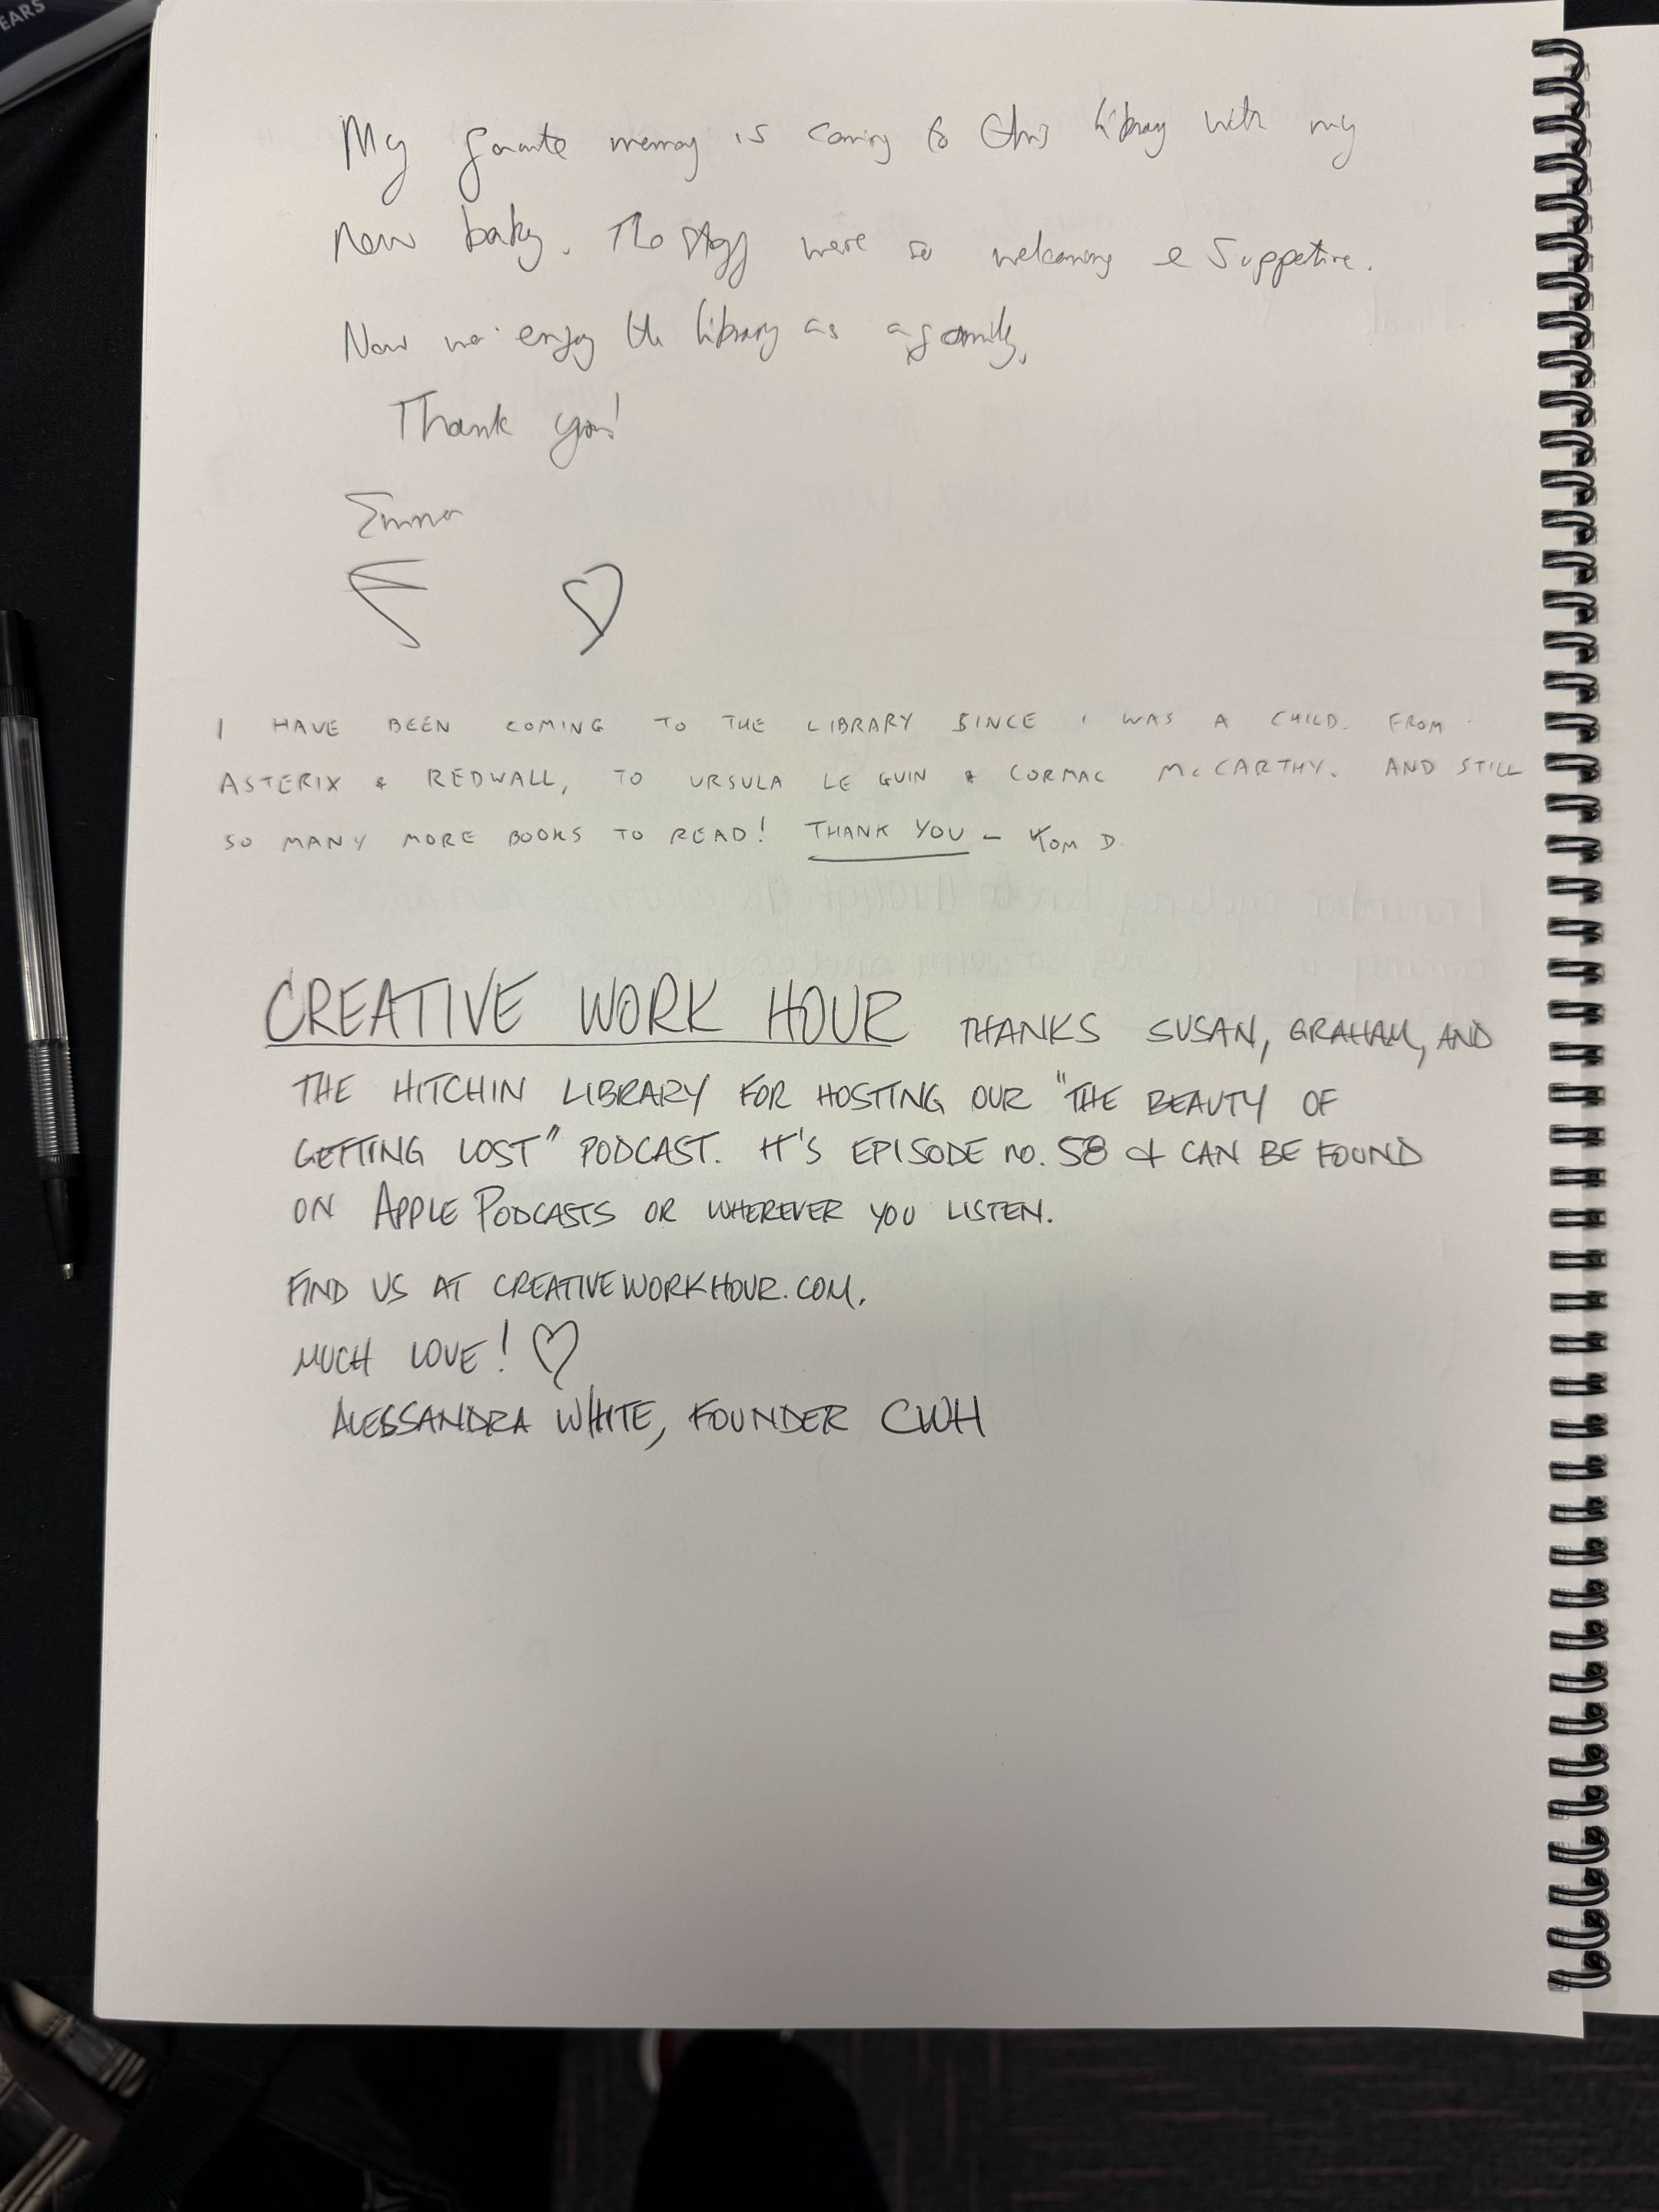 EARS
My favourite memory is coming to this library with my
new baby. The staff were so welcoming & supportive.
Now we enjoy the library as a family.
Thank you!
Emma
I HAVE BEEN COMING TO THE LIBRARY SINCE I WAS A CHILD. FROM
ASTERIX & REDWALL, TO URSULA LE GUIN & CORMAC McCARTHY. AND STILL
SO MANY MORE BOOKS TO READ! THANK YOU – TOM D.
CREATIVE WORK HOUR THANKS SUSAN, GRAHAM, AND
THE HITCHIN LIBRARY FOR HOSTING OUR "THE BEAUTY OF
GETTING LOST" PODCAST. IT'S EPISODE no. 58 & CAN BE FOUND
ON APPLE PODCASTS OR WHEREVER YOU LISTEN.
FIND US AT CREATIVEWORKHOUR.COM.
MUCH LOVE! ♡
ALESSANDRA WHITE, FOUNDER CWH